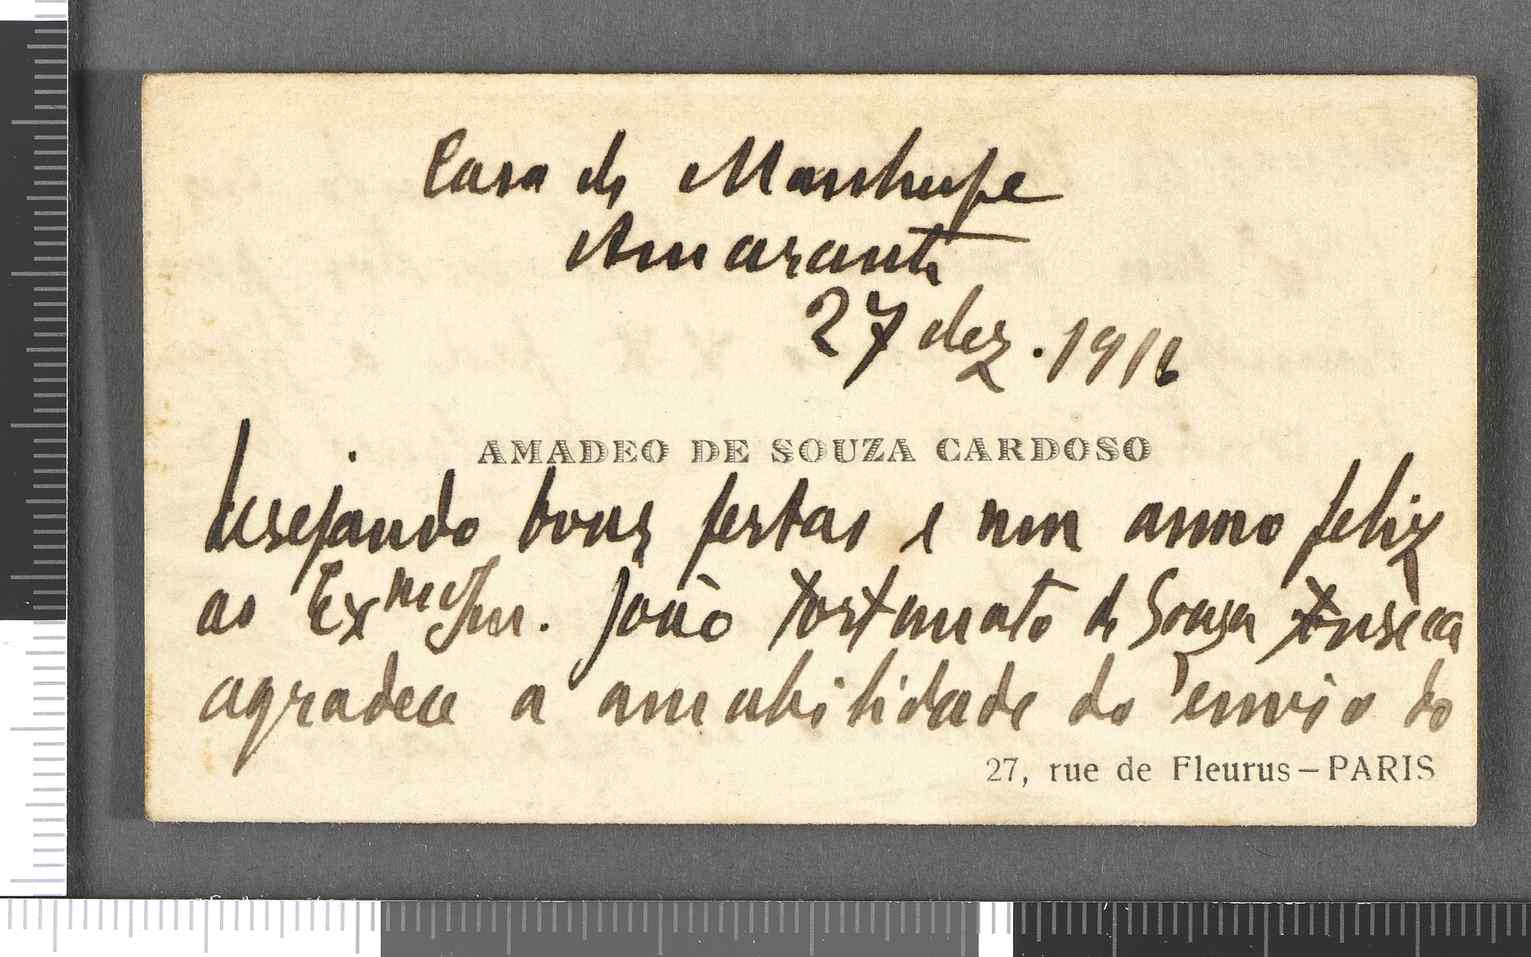 Casa de Manhufe
Amarante
27 dez. 1916
AMADEO DE SOUZA CARDOSO
desejando boas festas e um anno feliz
ao Exmo Snr. João Fortunato de Sousa Fonseca
agradece a amabilidade do envio do
27, rue de Fleurus – PARIS